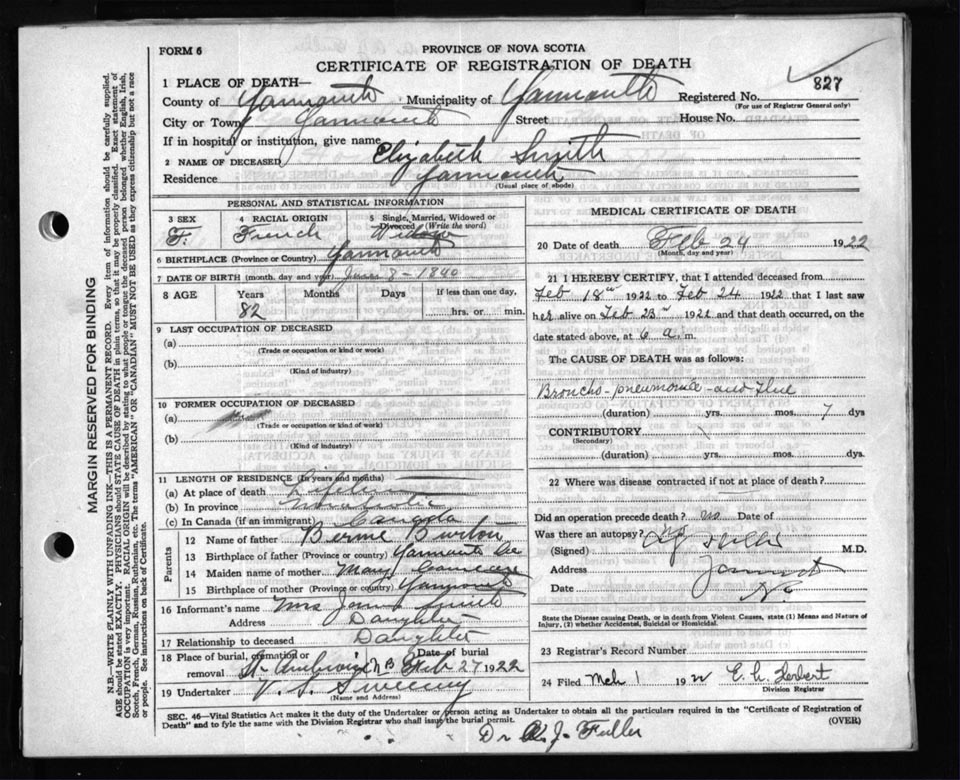 FORM 6
PROVINCE OF NOVA SCOTIA
CERTIFICATE OF REGISTRATION OF DEATH
1 PLACE OF DEATH—
County of Yarmouth Municipality of Yarmouth Registered No. 827
(For use of Registrar General only)
City or Town Yarmouth Street House No.
If in hospital or institution, give name
2 NAME OF DECEASED Elizabeth Smith
Residence Yarmouth
(Usual place of abode)
PERSONAL AND STATISTICAL INFORMATION
3 SEX 4 RACIAL ORIGIN 5 Single, Married, Widowed or Divorced (Write the word)
F. French Widow
6 BIRTHPLACE (Province or Country) Yarmouth
7 DATE OF BIRTH (month, day and year) 8 – 1840
8 AGE Years Months Days If less than one day,
82 hrs. or min.
9 LAST OCCUPATION OF DECEASED
(a)
(Trade or occupation or kind or work)
(b)
(Kind of industry)
10 FORMER OCCUPATION OF DECEASED
(a)
(Trade or occupation or kind of work)
(b)
(Kind of industry)
11 LENGTH OF RESIDENCE (In years and months)
(a) At place of death
(b) In province
(c) In Canada (if an immigrant) Canada
Parents
12 Name of father Burton
13 Birthplace of father (Province or country) Yarmouth Co
14 Maiden name of mother Mary
15 Birthplace of mother (Province or country) Yarmouth
16 Informant's name Mrs Smith
Address Daughter
17 Relationship to deceased Daughter
18 Place of burial, cremation or removal St Ambroise Date of burial Feb 27 1922
19 Undertaker V. S. Sweeney
(Name and Address)
MEDICAL CERTIFICATE OF DEATH
20 Date of death Feb 24 1922
(Month, day and year)
21 I HEREBY CERTIFY, that I attended deceased from
Feb 18th 1922 to Feb 24 1922 that I last saw
her alive on Feb 23rd 1922 and that death occurred, on the
date stated above, at 6 a.m.
The CAUSE OF DEATH was as follows:
Broncho-pneumonia and Flue
(duration) yrs. mos. 7 dys
CONTRIBUTORY
(Secondary)
(duration) yrs. mos. dys.
22 Where was disease contracted if not at place of death?
Did an operation precede death? no Date of
Was there an autopsy?
(Signed) M.D.
Address
Date
State the Disease causing Death, or in death from Violent Causes, state (1) Means and Nature of
Injury, (2) whether Accidental, Suicidal or Homicidal.
23 Registrar's Record Number
24 Filed Mch 1 1922
Division Registrar
SEC. 46—Vital Statistics Act makes it the duty of the Undertaker or person acting as Undertaker to obtain all the particulars required in the "Certificate of Registration of
Death" and to fyle the same with the Division Registrar who shall issue the burial permit. (OVER)
Dr A. J. Fuller
MARGIN RESERVED FOR BINDING
N.B—WRITE PLAINLY WITH UNFADING INK—THIS IS A PERMANENT RECORD. Every item of information should be carefully supplied.
AGE should be stated EXACTLY. PHYSICIANS should STATE CAUSE OF DEATH in plain terms, so that it may be properly classified. Exact statement of
OCCUPATION is very important. RACIAL ORIGIN will be described by stating to what people or tongue the deceased person belonged, whether English, Irish,
Scotch, French, German, Russian, Ruthenian, etc. The terms "AMERICAN" OR "CANADIAN" MUST NOT BE USED as they express citizenship but not a race
or people. See instructions on back of Certificate.